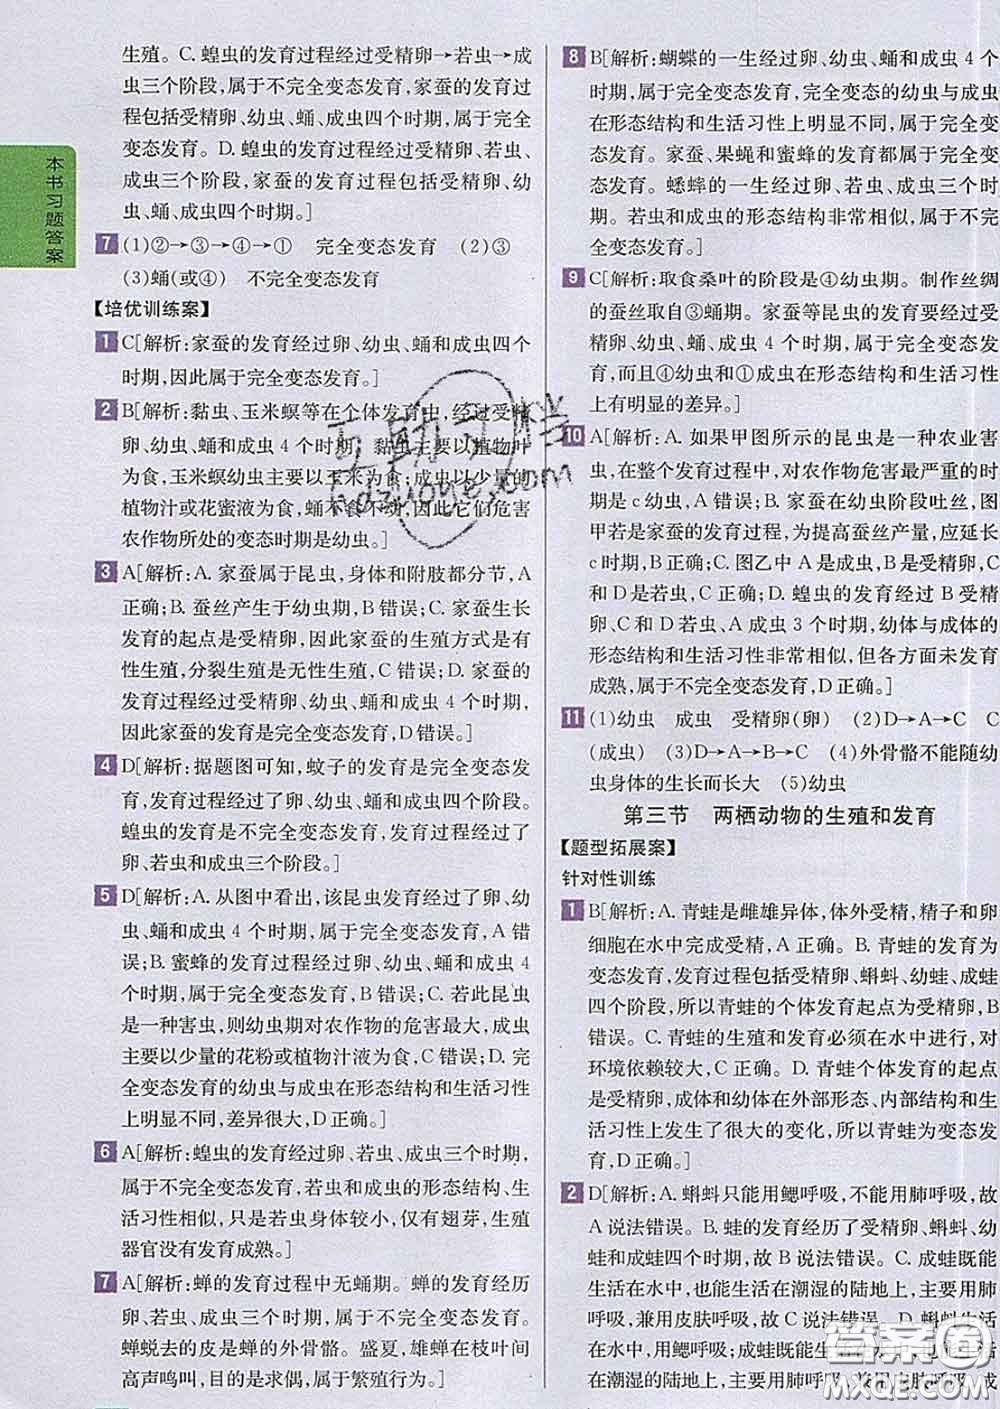 本书习题答案
生殖。C. 蝗虫的发育过程经过受精卵→若虫→成
虫三个阶段,属于不完全变态发育。家蚕的发育过
程包括受精卵、幼虫、蛹、成虫四个时期,属于完全
变态发育。D. 蝗虫的发育过程包括受精卵、若虫、
成虫三个阶段,家蚕的发育过程包括受精卵、幼
虫、蛹、成虫四个时期。]
7 (1)②→③→④→① 完全变态发育 (2)③
(3)蛹(或④) 不完全变态发育
【培优训练案】
1 C[解析:家蚕的发育经过卵、幼虫、蛹和成虫四个
时期,因此属于完全变态发育。]
2 B[解析:黏虫、玉米螟等在个体发育中,经过受精
卵、幼虫、蛹和成虫 4 个时期。黏虫主要以植物叶
为食,玉米螟幼虫主要以玉米为食;成虫以少量的
植物汁或花蜜液为食,蛹不食不动,因此它们危害
农作物所处的变态时期是幼虫。]
3 A[解析:A. 家蚕属于昆虫,身体和附肢都分节,A
正确;B. 蚕丝产生于幼虫期,B 错误;C. 家蚕生长
发育的起点是受精卵,因此家蚕的生殖方式是有
性生殖,分裂生殖是无性生殖,C 错误;D. 家蚕的
发育过程经过受精卵、幼虫、蛹和成虫 4 个时期,
因此家蚕的发育是完全变态发育,D 错误。]
4 D[解析:据题图可知,蚊子的发育是完全变态发
育,发育过程经过了卵、幼虫、蛹和成虫四个阶段。
蝗虫的发育是不完全变态发育,发育过程经过了
卵、若虫和成虫三个阶段。]
5 D[解析:A. 从图中看出,该昆虫发育经过了卵、幼
虫、蛹和成虫 4 个时期,属于完全变态发育,A 错
误;B. 蜜蜂的发育过程经过卵、幼虫、蛹和成虫 4
个时期,属于完全变态发育,B 错误;C. 若此昆虫
是一种害虫,则幼虫期对农作物的危害最大,成虫
主要以少量的花粉或植物汁液为食,C 错误;D. 完
全变态发育的幼虫与成虫在形态结构和生活习性
上明显不同,差异很大,D 正确。]
6 A[解析:蝗虫的发育经过卵、若虫、成虫三个时期,
属于不完全变态发育,若虫和成虫的形态结构、生
活习性相似,只是若虫身体较小,仅有翅芽,生殖
器官没有发育成熟。]
7 A[解析:蝉的发育过程中无蛹期。蝉的发育经历
卵、若虫、成虫三个时期,属于不完全变态发育。
蝉蜕去的皮是蝉的外骨骼。盛夏,雄蝉在枝叶间
高声鸣叫,目的是求偶,属于繁殖行为。]
8 B[解析:蝴蝶的一生经过卵、幼虫、蛹和成虫 4 个
时期,属于完全变态发育,完全变态的幼虫与成虫
在形态结构和生活习性上明显不同,差异很大
。家蚕、果蝇和蜜蜂的发育都属于完全
变态发育。蟋蟀的一生经过卵、若虫、成虫三个时
期。若虫和成虫的形态结构非常相似,属于不完
全变态发育。]
9 C[解析:取食桑叶的阶段是④幼虫期。制作丝绸
的蚕丝取自③蛹期。家蚕等昆虫的发育要经过受
精卵、幼虫、蛹和成虫 4 个时期,属于完全变态发
育,而且④幼虫和①成虫在形态结构和生活习性
上有明显的差异。]
10 A[解析:A. 如果甲图所示的昆虫是一种农业害
虫,在整个发育过程中,对农作物危害最严重的时
期是 c 幼虫,A 错误;B. 家蚕在幼虫阶段吐丝,图
甲若是家蚕的发育过程,为提高蚕丝产量,应延长
c 幼虫期,B 正确;C. 图乙中 A 是成虫,B 是受精卵,C
和 D 是若虫,C 正确;D. 蝗虫的发育经过 B 受精
卵、C 和 D 若虫、A 成虫 3 个时期,幼体与成体的
形态结构和生活习性非常相似,但各方面未发育
成熟,属于不完全变态发育,D 正确。]
11 (1)幼虫 成虫 受精卵(卵) (2)D→A→C C
(成虫) (3)D→A→B→C (4)外骨骼不能随幼
虫身体的生长而长大 (5)幼虫
第三节 两栖动物的生殖和发育
【题型拓展案】
针对性训练
1 B[解析:A. 青蛙是雌雄异体,体外受精,精子和卵
细胞在水中完成受精,A 正确。B. 青蛙的发育为
变态发育,发育过程包括受精卵、蝌蚪、幼蛙、成蛙
四个阶段,所以青蛙的个体发育起点为受精卵,B
错误。C. 青蛙的生殖和发育必须在水中进行,对
环境依赖较大,C 正确。D. 青蛙个体发育的起点
是受精卵,成体和幼体在外部形态、内部结构和生
活习性上发生了很大的变化,所以青蛙为变态发
育,D 正确。]
2 D[解析:A. 蝌蚪只能用鳃呼吸,不能用肺呼吸,故
A 说法错误。B. 蛙的发育经历了受精卵、蝌蚪、幼
蛙和成蛙四个时期,故 B 说法错误。C. 成蛙既能
生活在水中,也能生活在潮湿的陆地上,主要用肺
呼吸,兼用皮肤呼吸,故 C 说法错误。D. 蝌蚪生活
在水中,用鳃呼吸;成蛙既能生活在水中,也能生活
在潮湿的陆地上,主要用肺呼吸,兼用皮肤呼吸,成
互助习作
hdzuoye.com
答案圈
MXQE.COM